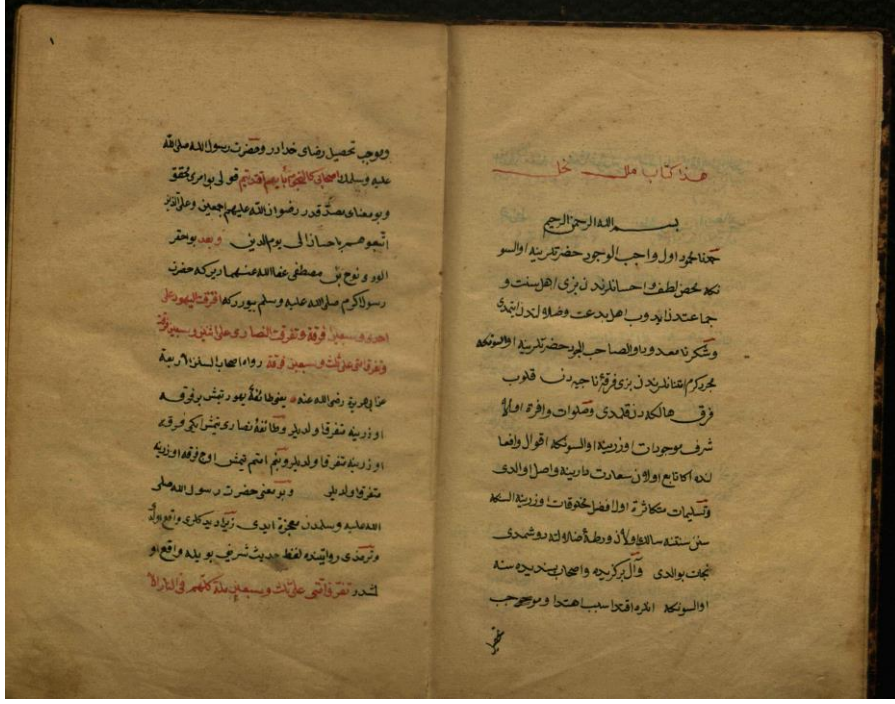 هذا كتاب ملل نحل
بسم الله الرحمن الرحيم
حمد نامحدود اول واجب الوجود حضرتلرينه اولسو
نكه محض لطف واحسانلرندن بزى اهل سنت و
جماعتدن ايدوب اهل بدعت وضلالتدن ايتمدى
وشكر نامعدود اول صاحب الجود حضرتلرينه اولسونكه
مجرد كرم امتنانلرندن بزى فرقۀ ناجيه دن قلوب
فرق هالكه دن قلمدى وصلوات وافره اول
شرف موجودات اوزرينه اولسونكه اقوال وافعا
لنده اكا تابع اولان سعادت دارينه واصل اولدى
وتسليمات متكاثره اول افضل مخلوقات اوزرينه السكه
سنن سننه سالك اولان ورطۀ ضلالته دوشمدى
نجات بولدى وآل بركزيده واصحاب پسنديده سنه
اولسونكه انلره اقتدا سبب اهتدا وموجب
تحصيل
١
وموجب تحصيل رضاى خدادر وحضرت رسول الله صلى الله
عليه وسلمك اصحابى كالنجوم بايهم اقتديتم اهتديتم قولى بو امرى محقق
وبو معنايى مصدقدر رضوان الله عليهم اجمعين وعلى الذين
اتبعوهم باحسان الى يوم الدين وبعد بو احقر
الورى نوح بن مصطفى عفا الله عنهما ديركه حضرت
رسول اكرم صلى الله عليه وسلم بيورركه افترقت اليهود على
احدى وسبعين فرقة وتفرقت النصارى على اثنين وسبعين فرقة
وتفرق امتى على ثلث وسبعين فرقة رواه اصحاب السنن الاربعة
عن ابى هريرة رضى الله عنه يعنى طائفۀ يهود يتمش بر فرقه
اوزرينه متفرق اولديلر وطائفۀ نصارى يتمش ايكى فرقه
اوزرينه متفرق اولديلر وبنم امتم يتمش اوچ فرقه اوزرينه
متفرق اولديلر وبو معنى حضرت رسول الله صلى
الله عليه وسلمدن معجزه ايدى زيرا ديدكلرى واقع اولد
وترمذى روايتنده لفظ حديث شريف بويله واقع او
لمشدر تفرق امتى على ثلث وسبعين ملة كلهم فى النار الا